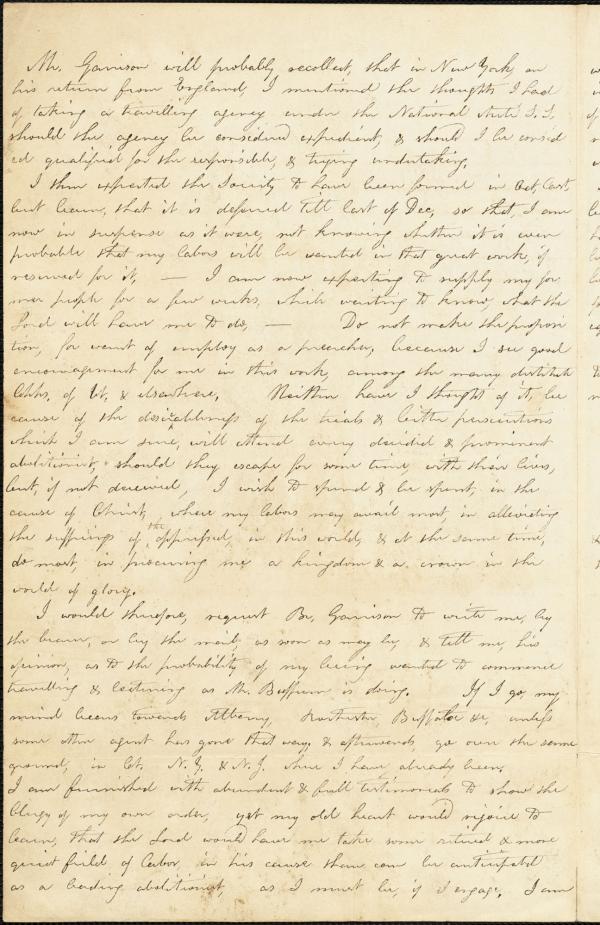 Mr. Garrison will probably recollect, that in New York, on
his return from England, I mentioned the thoughts I had
of taking a travelling agency under the National Anti S. S.
should the agency be considered expedient, & should I be consid
ed qualified for the responsible, & trying undertaking.
I then expected the Society to have been formed in Oct. last,
but learn, that it is deferred till last of Dec, so that, I am
now in suspense as it were, not knowing whether it is even
probable that my labors will be wanted in that great work, if
reserved for it, — I am now expecting to supply my for
mer people for a few weeks, while waiting to know, what the
Lord will have me to do, — Do not make the proposi
tion, for want of employ as a preacher, because I see good
encouragement for me in this work, among the many destitute
Chhs, of Vt, & elsewhere. Neither have I thought of it, be
cause of the desirableness of the trials & bitter persecutions
which I am sure, will attend every decided & prominent
abolitionist, should they escape for some time, with their lives,
but, if not deceived, I wish to spend & be spent, in the
cause of Christ, where my labors may avail most in alleviating
the sufferings of the oppressed, in this world, & at the same time,
do most, in procuring me a kingdom & a crown in the
world of glory.
I would therefore, request Br. Garrison to write me, by
the bearer, or by the mail, as soon as may be, & tell me, his
opinion, as to the probability of my being wanted to commence
travelling & lecturing as Mr. Buffum is doing. If I go, my
mind leans towards Albany, Rochester, Buffaloe &c, unless
some other agent has gone that way, & afterwards, go over the same
ground, in Ct. N.Y. & N.J. where I have already been.
I am furnished with abundent & full testimonials to show the
Clergy of my own order, yet my old heart would rejoice to
learn, that the Lord would have me take some retired & more
quiet field of labor, in his cause than can be anticipated
as a leading abolitionist, as I must be, if I engage. I am